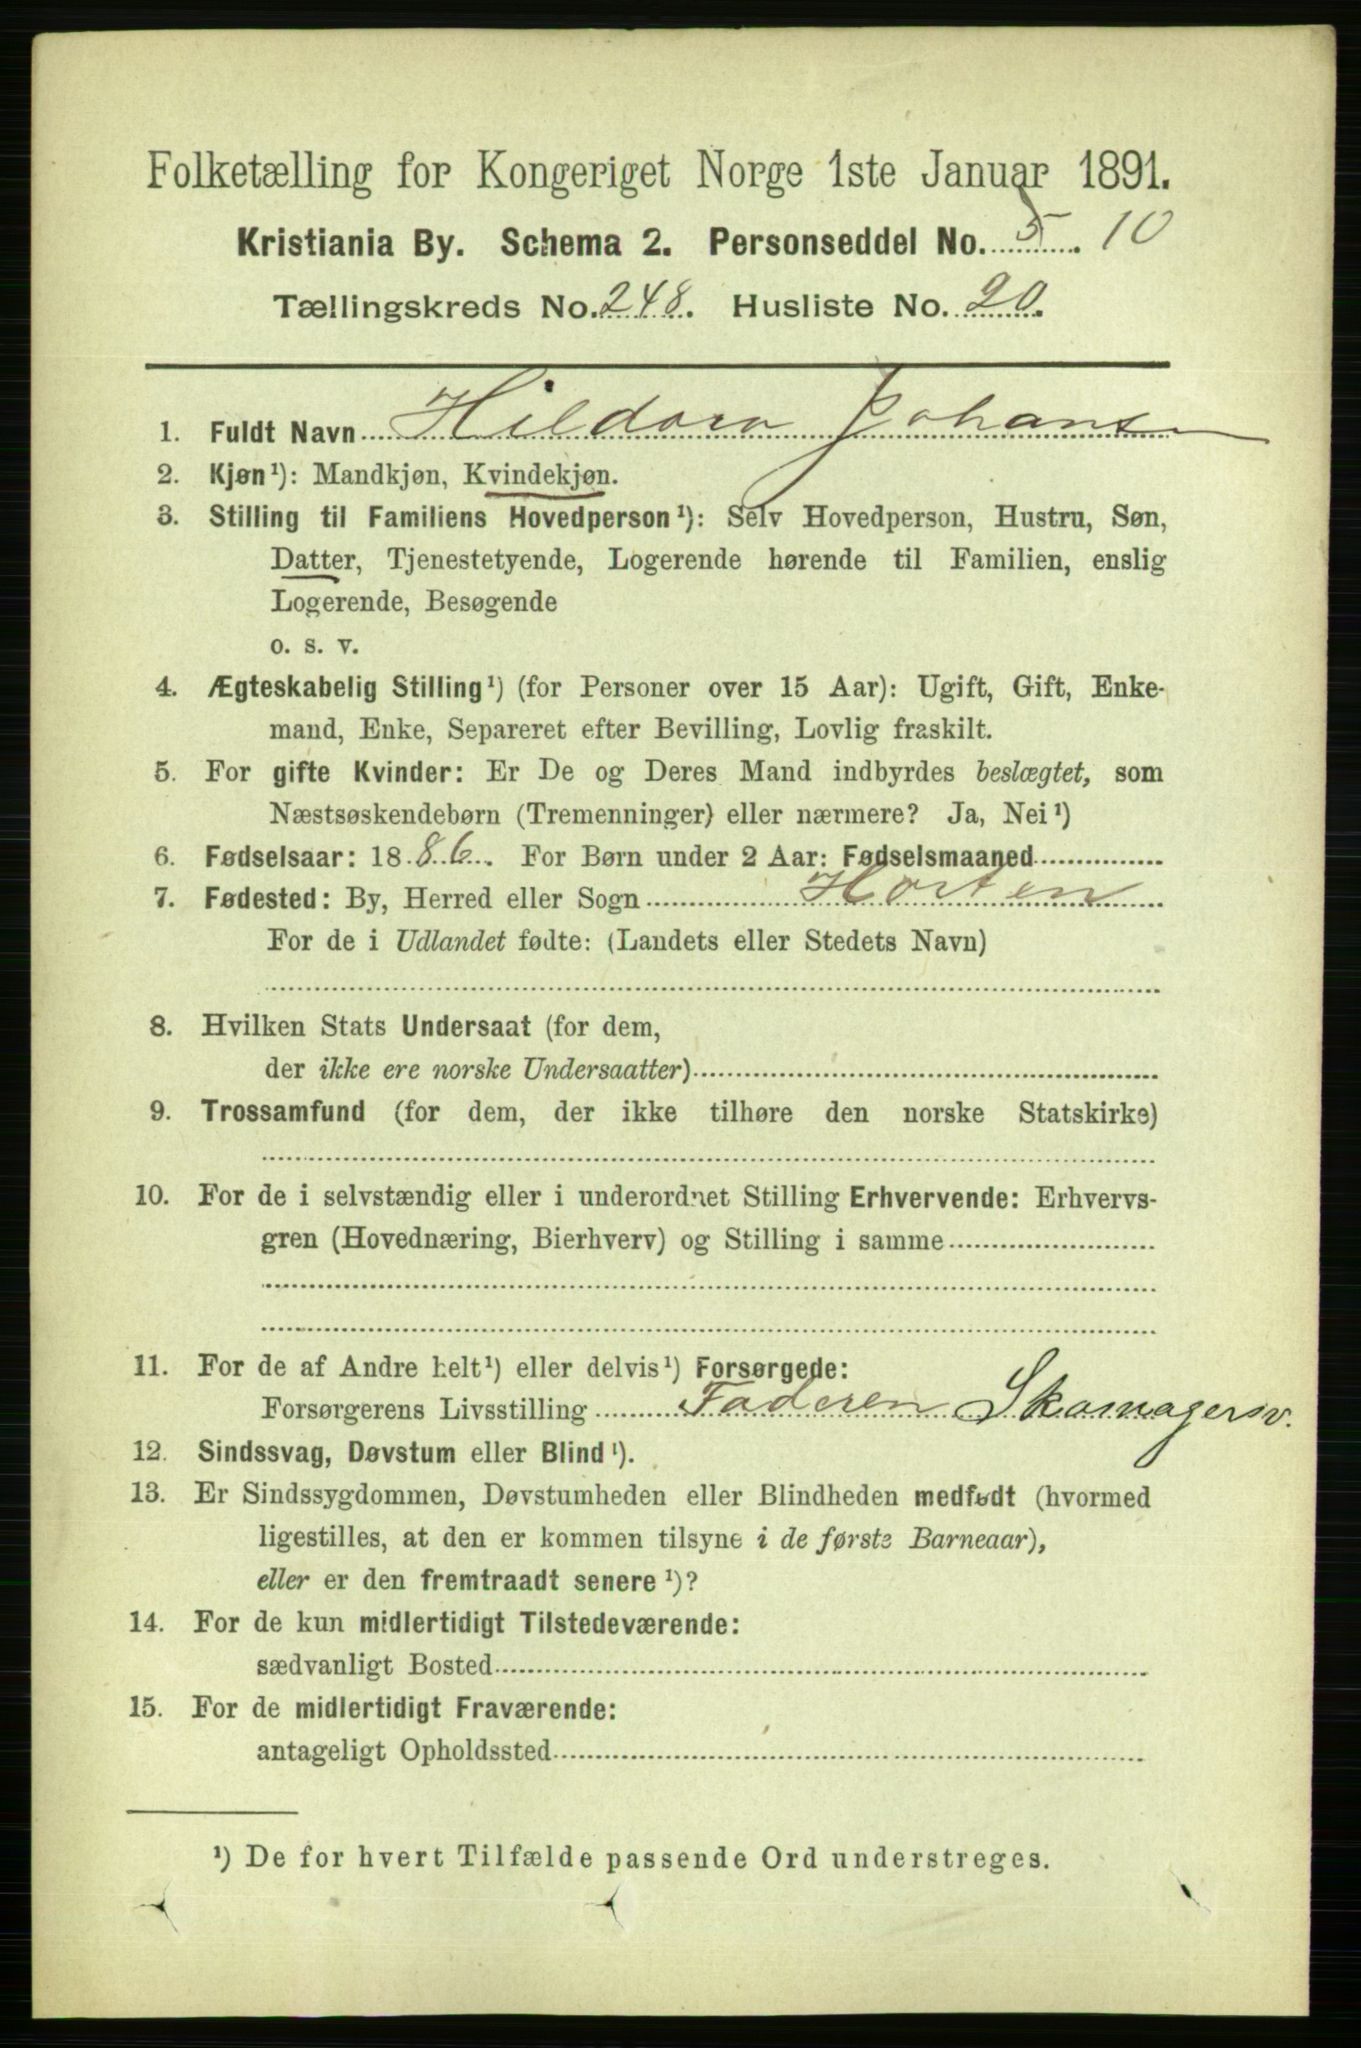 Folketælling for Kongeriget Norge 1ste Januar 1891.
Kristiania By. Schema 2. Personseddel No. 5. 10
Tællingskreds No. 248. Husliste No. 20.
1. Fuldt Navn Hildara Johansen
2. Kjøn¹): Mandkjøn, Kvindekjøn.
3. Stilling til Familiens Hovedperson¹): Selv Hovedperson, Hustru, Søn,
Datter, Tjenestetyende, Logerende hørende til Familien, enslig
Logerende, Besøgende
o. s. v.
4. Ægteskabelig Stilling¹) (for Personer over 15 Aar): Ugift, Gift, Enke-
mand, Enke, Separeret efter Bevilling, Lovlig fraskilt.
5. For gifte Kvinder: Er De og Deres Mand indbyrdes beslægtet, som
Næstsøskendebørn (Tremenninger) eller nærmere? Ja, Nei¹)
6. Fødselsaar: 1886. For Børn under 2 Aar: Fødselsmaaned
7. Fødested: By, Herred eller Sogn Horten
For de i Udlandet fødte: (Landets eller Stedets Navn)
8. Hvilken Stats Undersaat (for dem,
der ikke ere norske Undersaatter)
9. Trossamfund (for dem, der ikke tilhøre den norske Statskirke)
10. For de i selvstændig eller i underordnet Stilling Erhvervende: Erhvervs-
gren (Hovednæring, Bierhverv) og Stilling i samme
11. For de af Andre helt¹) eller delvis¹) Forsørgede:
Forsørgerens Livsstilling Faderen Skomagersv.
12. Sindssvag, Døvstum eller Blind¹).
13. Er Sindssygdommen, Døvstumheden eller Blindheden medfødt (hvormed
ligestilles, at den er kommen tilsyne i de første Barneaar),
eller er den fremtraadt senere¹)?
14. For de kun midlertidigt Tilstedeværende:
sædvanligt Bosted
15. For de midlertidigt Fraværende:
antageligt Opholdssted
¹) De for hvert Tilfælde passende Ord understreges.